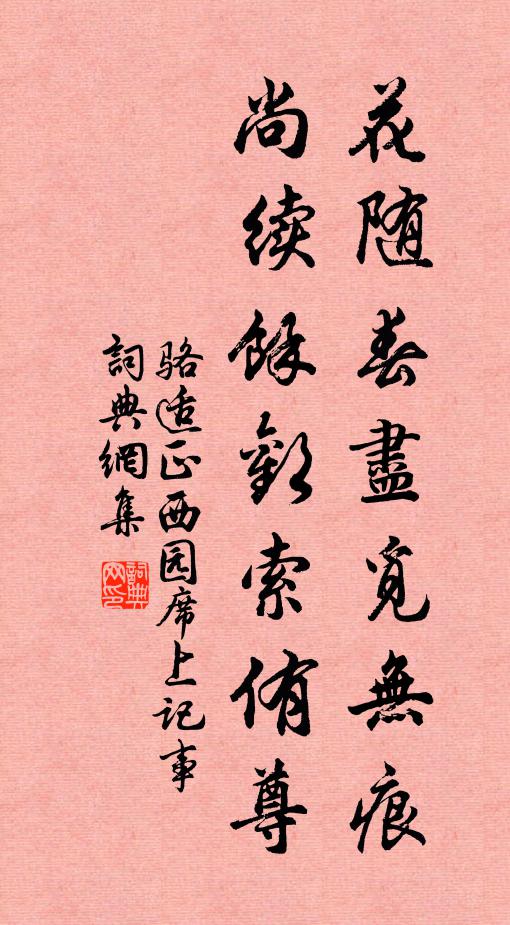 花随春盡覓無痕
尚续餘歡索侑尊
骆适正西园席上记事
詞典網集
詞典网印